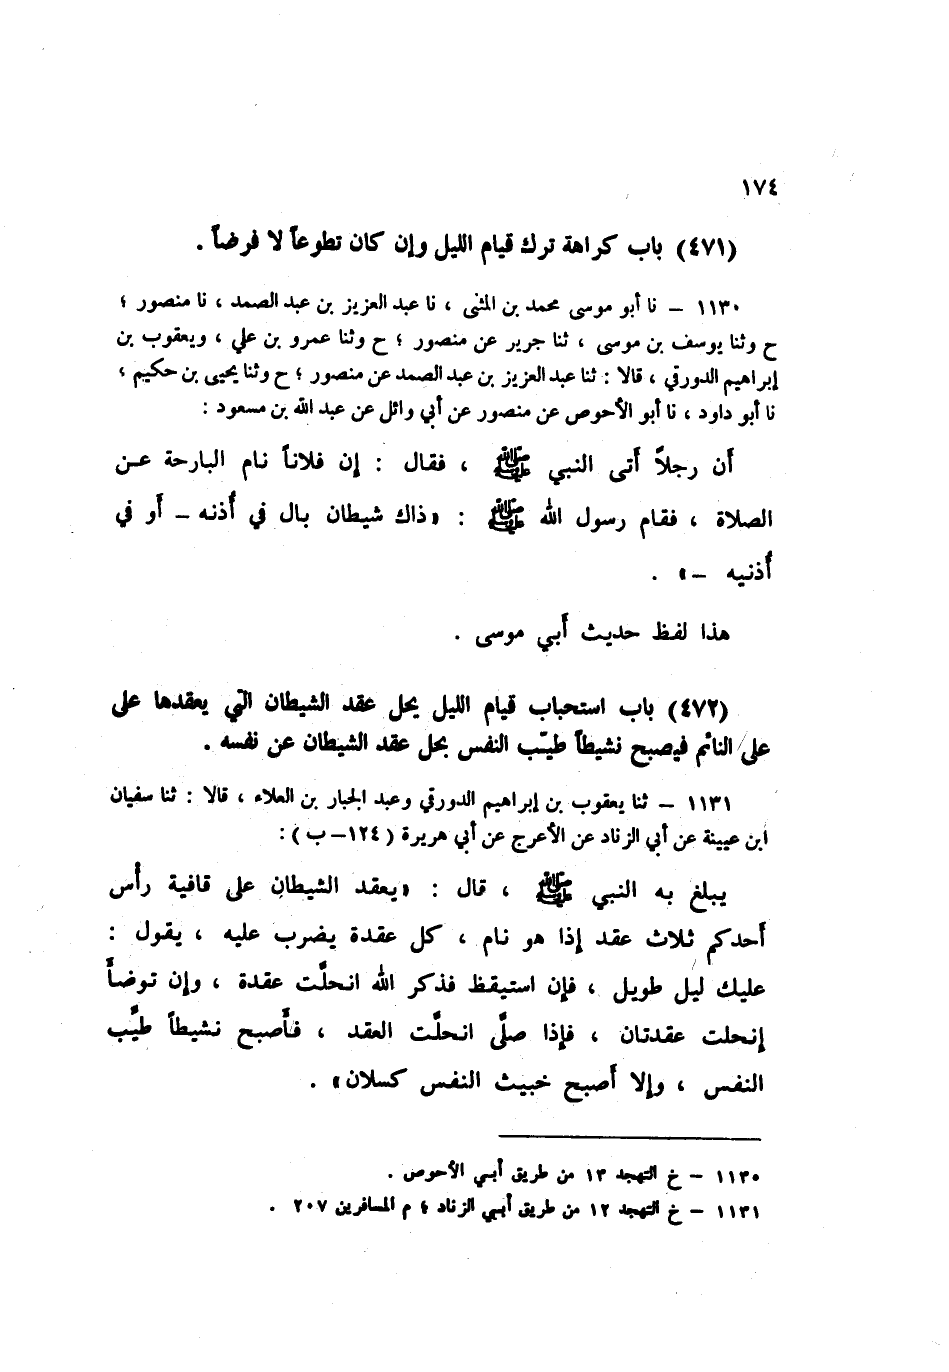 ١٧٤
(٤٧١) باب كراهة ترك قيام الليل وإن كان تطوعاً لا فرضاً .
١١٣٠ – نا أبو موسى محمد بن المثنى ، نا عبد العزيز بن عبد الصمد ، نا منصور ؛
ح وثنا يوسف بن موسى ، ثنا جرير عن منصور ؛ ح وثنا عمرو بن علي ، ويعقوب بن
إبراهيم الدورقي ، قالا : ثنا عبد العزيز بن عبد الصمد عن منصور ؛ ح وثنا يحيى بن حكيم ،
نا أبو داود ، نا أبو الأحوص عن منصور عن أبي وائل عن عبد الله بن مسعود :
أن رجلاً أتى النبي ﷺ ، فقال : إن فلاناً نام البارحة عن
الصلاة ، فقام رسول الله ﷺ : «ذاك شيطان بال في أُذنه – أو في
أُذنيه –» .
هذا لفظ حديث أبي موسى .
(٤٧٢) باب استحباب قيام الليل يحل عقد الشيطان التي يعقدها على
على النائم فيصبح نشيطاً طيّب النفس بحل عقد الشيطان عن نفسه .
١١٣١ – ثنا يعقوب بن إبراهيم الدورقي وعبد الجبار بن العلاء ، قالا : ثنا سفيان
ابن عيينة عن أبي الزناد عن الأعرج عن أبي هريرة (١٢٤–ب) :
يبلغ به النبي ﷺ ، قال : «يعقد الشيطان على قافية رأس
أحدكم ثلاث عقد إذا هو نام ، كل عقدة يضرب عليه ، يقول :
عليك ليل طويل ، فإن استيقظ فذكر الله انحلَّت عقدة ، وإن توضأَ
إنحلت عقدتان ، فإذا صلَّى انحلَّت العقد ، فأَصبح نشيطاً طيَّب
النفس ، وإلا أصبح خبيث النفس كسلان» .
١١٣٠ – خ التهجد ١٣ من طريق أبي الأحوص .
١١٣١ – خ التهجد ١٢ من طريق أبي الزناد ؛ م المسافرين ٢٠٧ .